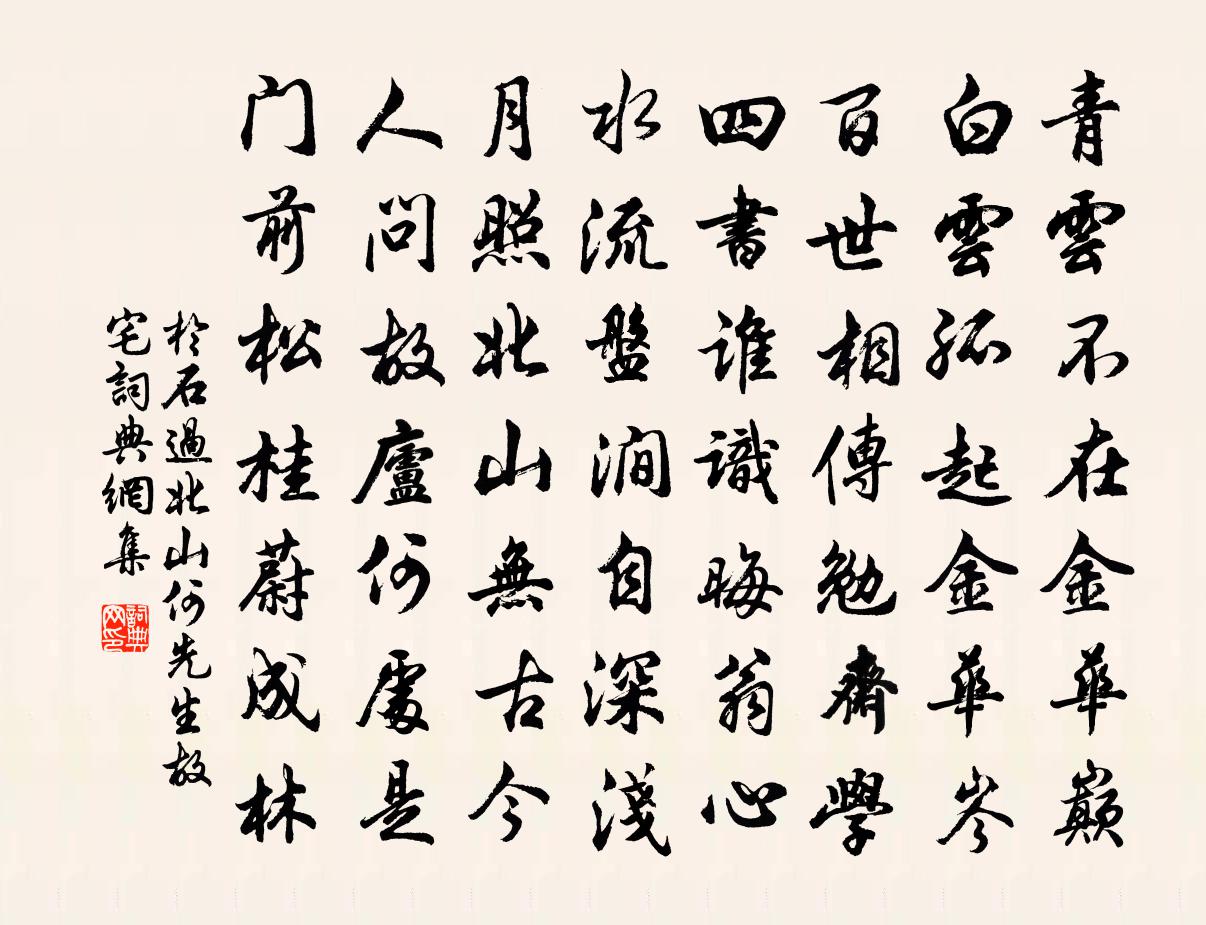 青雲不在金華巔
白雲孤起金華岑
百世相傳勉齋學
四書誰識晦翁心
水流盤澗自深淺
月照北山無古今
人問故廬何處是
门前松桂蔚成林
於石過北山何先生故
宅詞典網集
詞典
网印